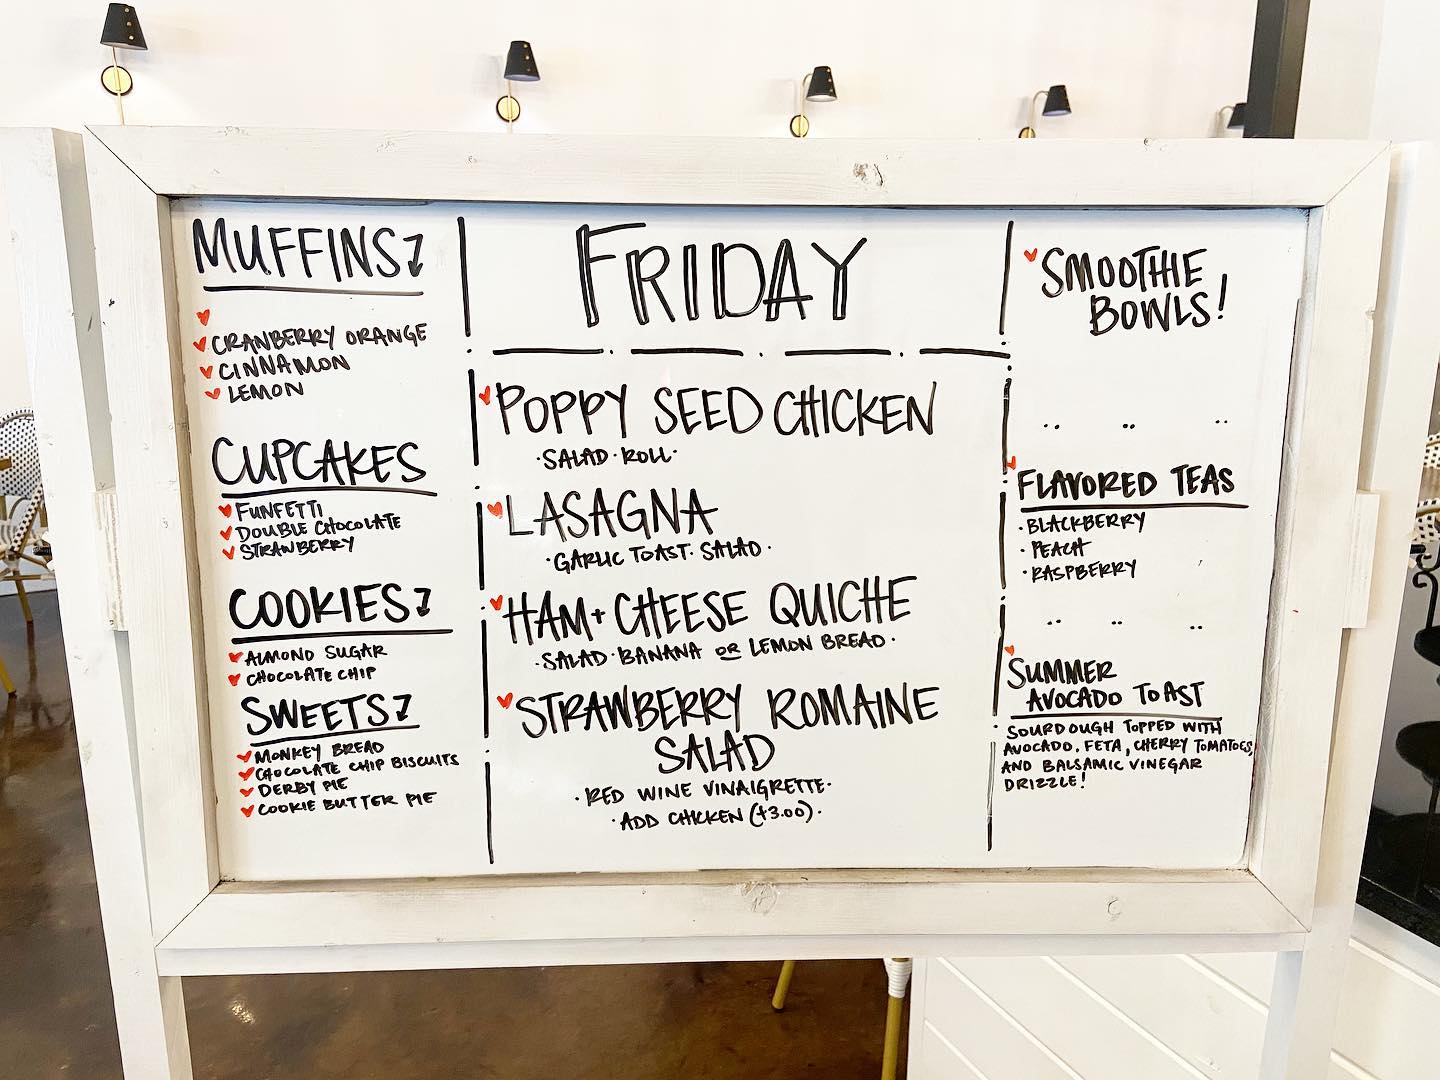 MUFFINS
CRANBERRY ORANGE
CINNAMON
LEMON
CUPCAKES
FUNFETTI
DOUBLE CHOCOLATE
STRAWBERRY
COOKIES
ALMOND SUGAR
CHOCOLATE CHIP
SWEETS
MONKEY BREAD
CHOCOLATE CHIP BISCUITS
DERBY PIE
COOKIE BUTTER PIE
FRIDAY
POPPY SEED CHICKEN
·SALAD·ROLL·
LASAGNA
·GARLIC TOAST·SALAD·
HAM+CHEESE QUICHE
·SALAD·BANANA OR LEMON BREAD·
STRAWBERRY ROMAINE
SALAD
·RED WINE VINAIGRETTE·
·ADD CHICKEN (+3.00)·
SMOOTHIE
BOWLS!
FLAVORED TEAS
·BLACKBERRY
·PEACH
·RASPBERRY
SUMMER
AVOCADO TOAST
SOURDOUGH TOPPED WITH
AVOCADO, FETA, CHERRY TOMATOES,
AND BALSAMIC VINEGAR
DRIZZLE!